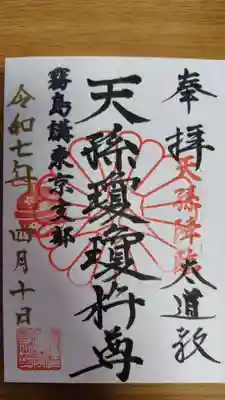 奉拝
天孫降臨
大道教
天孫瓊瓊杵尊
霧島講東京支部
令和七年四月十日